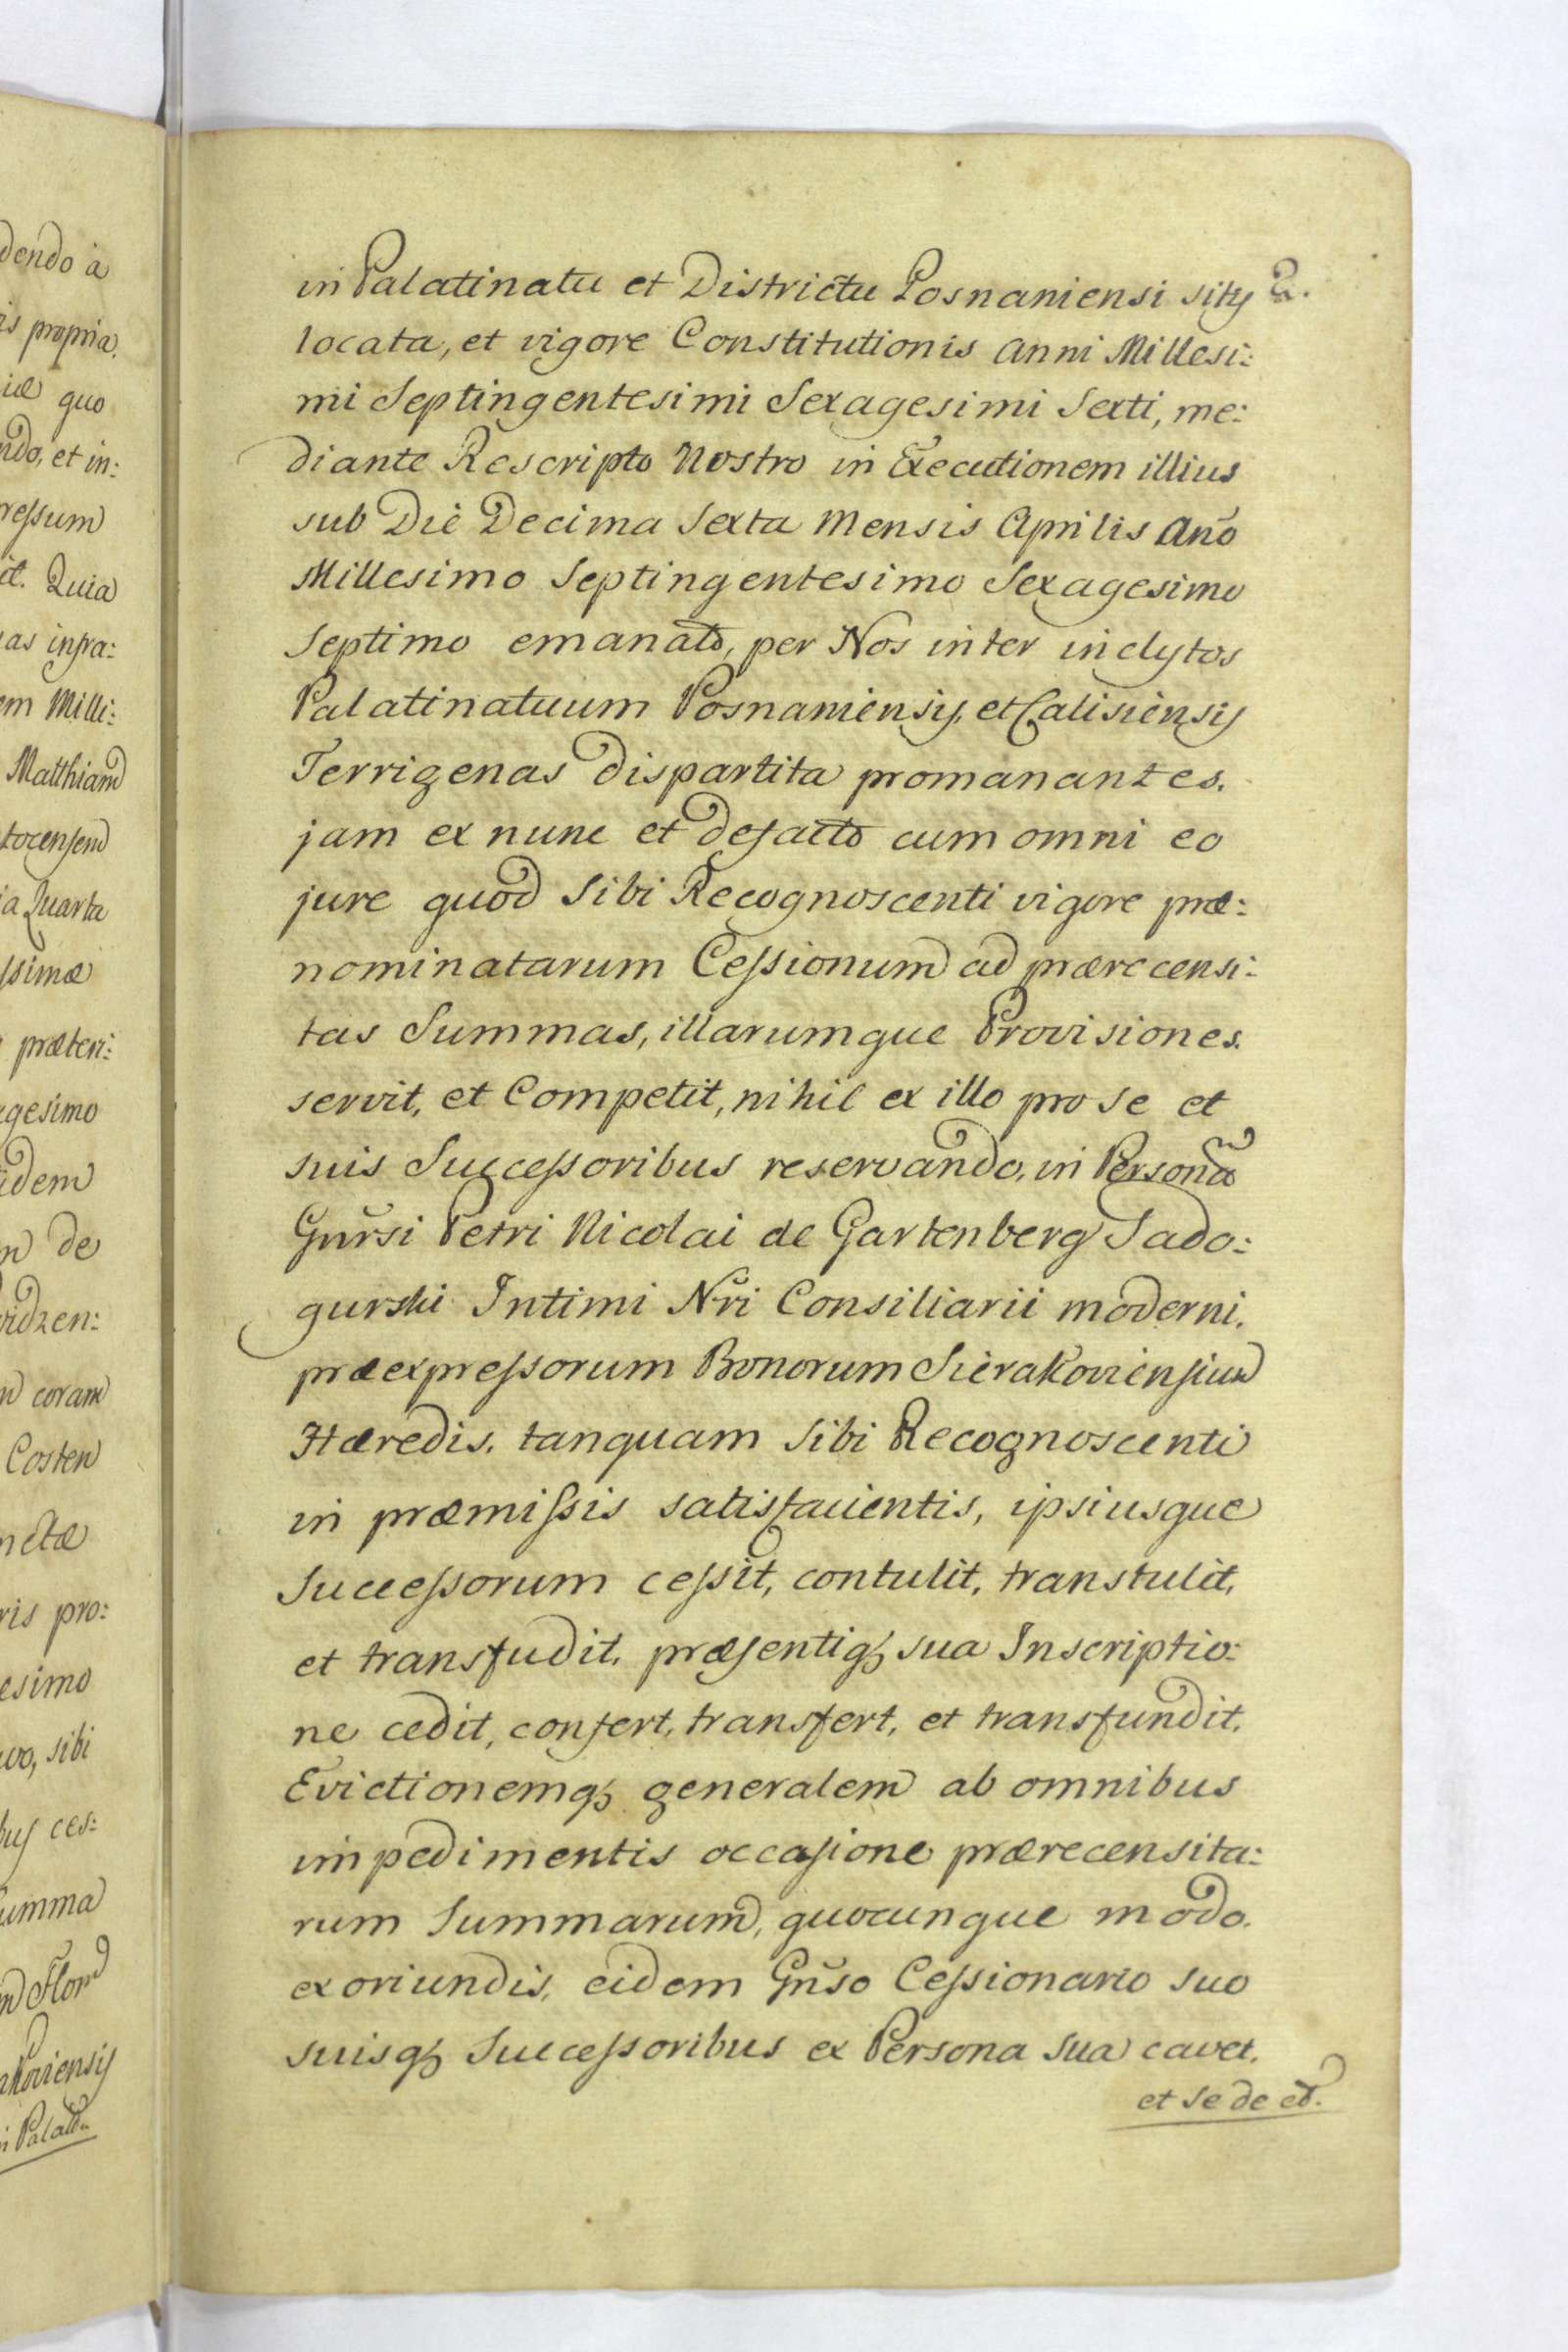 dendo à
is propria.
iæ quo
ndo, et in:
ressum
it. Quia
as infra:
em Milli:
Matthiam
torensem
ia Quarta
ssimæ
præteri:
gesimo
idem
de
vidzen:
coram
Costen
nctæ
ris pro:
esimo
vo, sibi
bus ces:
umma
Flor
akoviensis
i Palati:
2.
in Palatinatu et Districtu Posnaniensi sitis
locata, et vigore Constitutionis Anni Millesi:
mi Septingentesimi Sexagesimi Sexti, me:
diante Rescripto Nostro in Executionem illius
sub Die Decima Sexta Mensis Aprilis Año
Millesimo Septingentesimo Sexagesimo
Septimo emanato, per Nos inter inclytos
Palatinatuum Posnaniensis, et Calisiensis
Terrigenas dispartita promanantes.
jam ex nunc et defacto cum omni eo
jure quod Sibi Recognoscenti vigore præ:
nominatarum Cessionum ad prærecensi:
tas Summas, illarumque Provisiones.
servit, et Competit, nihil ex illo pro se et
suis Successoribus reservando, in Personã
Gñrsi Petri Nicolai de Gartenberg Sado:
gurski Intimi Nri Consiliarii moderni.
præexpressorum Bonorum Sierakoviensium
Hæredis, tanquam Sibi Recognoscenti
in præmissis satisfacientis, ipsiusque
Successorum cessit, contulit, transtulit,
et transfudit, præsentiq; sua Inscriptio:
ne cedit, confert, transfert, et transfundit,
Evictionemq; generalem ab omnibus
impedimentis occasione prærecensita:
rum Summarum, quocunque modo.
exoriundis, eidem Gñso Cessionario suo
suisq; Successoribus ex Persona sua cavet.
et se de ed.